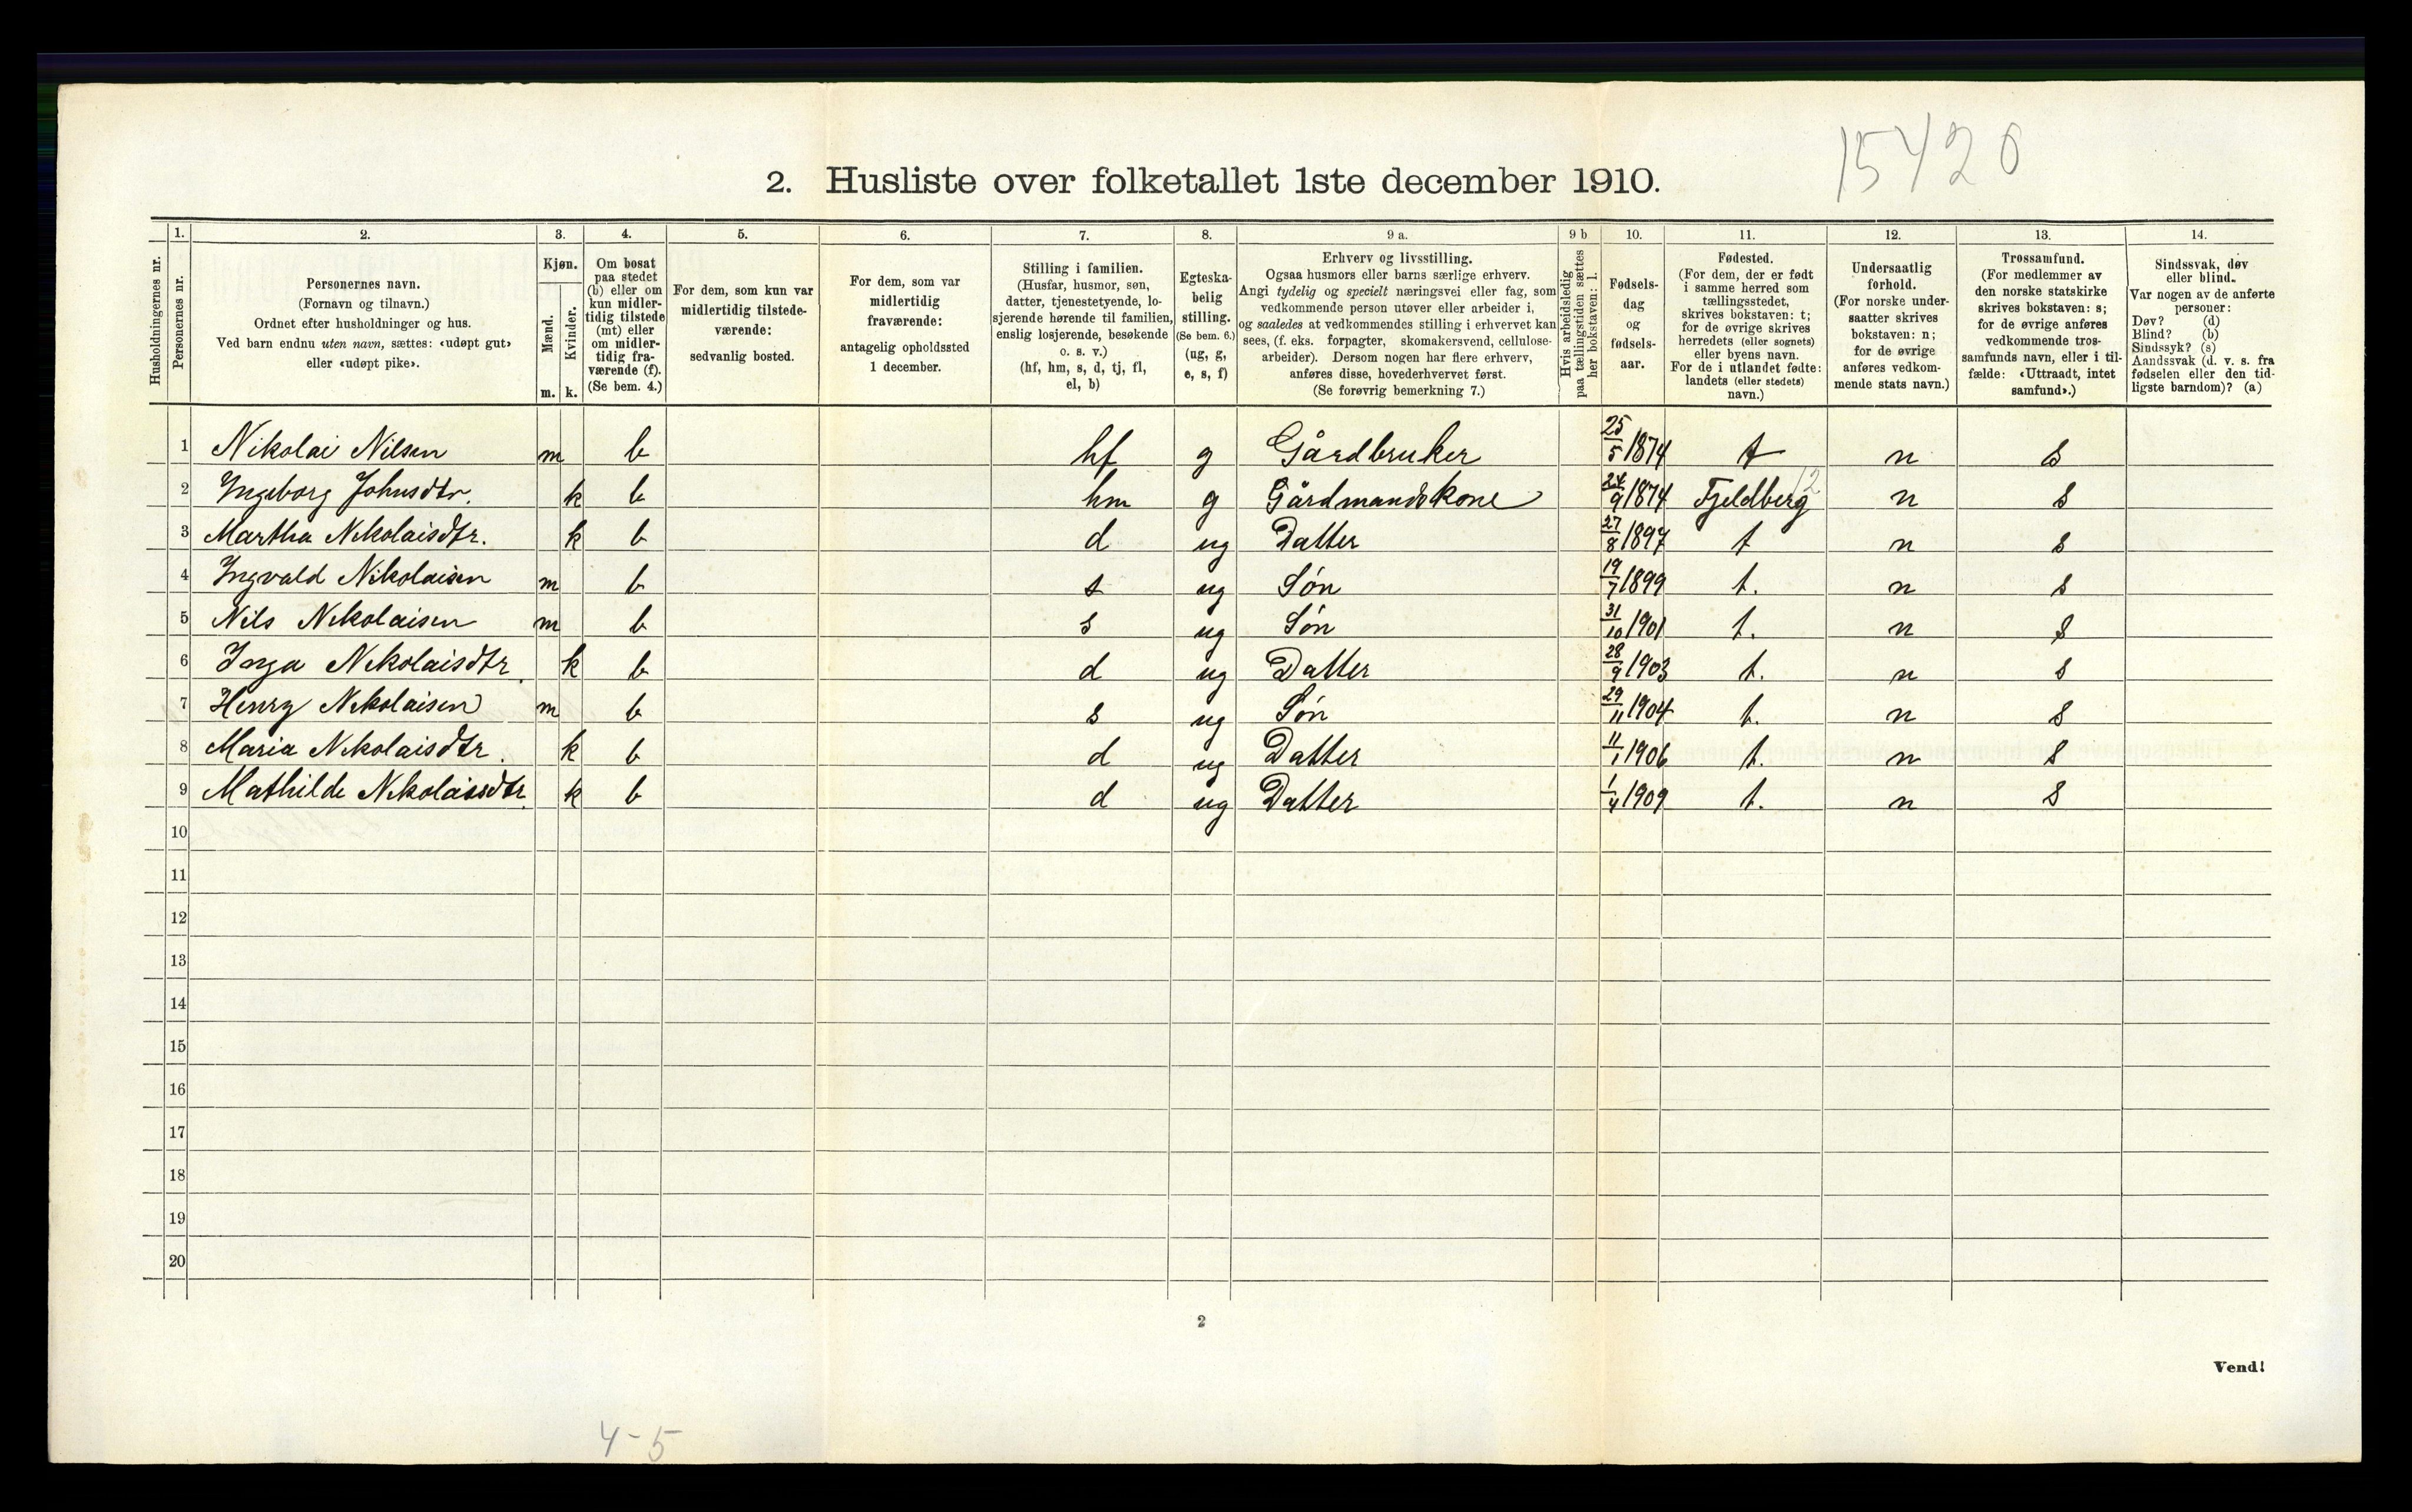 15420
2. Husliste over folketallet 1ste december 1910.
Husholdningernes nr.
1.
Personernes nr.
2.
Personernes navn.
(Fornavn og tilnavn.)
Ordnet efter husholdninger og hus.
Ved barn endnu uten navn, sættes: «udøpt gut»
eller «udøpt pike».
3.
Kjøn.
Mænd.
Kvinder.
m.
k.
4.
Om bosat
paa stedet
(b) eller om
kun midler-
tidig tilstede
(mt) eller
om midler-
tidig fra-
værende (f).
(Se bem. 4.)
5.
For dem, som kun var
midlertidig tilstede-
værende:
sedvanlig bosted.
6.
For dem, som var
midlertidig
fraværende:
antagelig opholdssted
1 december.
7.
Stilling i familien.
(Husfar, husmor, søn,
datter, tjenestetyende, lo-
sjerende hørende til familien,
enslig losjerende, besøkende
o. s. v.)
(hf, hm, s, d, tj, fl,
el, b)
8.
Egteska-
belig
stilling.
(Se bem. 6.)
(ug, g,
e, s, f)
9 a.
Erhverv og livsstilling.
Ogsaa husmors eller barns særlige erhverv.
Angi tydelig og specielt næringsvei eller fag, som
vedkommende person utøver eller arbeider i,
og saaledes at vedkommendes stilling i erhvervet kan
sees, (f. eks. forpagter, skomakersvend, cellulose-
arbeider). Dersom nogen har flere erhverv,
anføres disse, hovederhvervet først.
(Se forøvrig bemerkning 7.)
9 b
Hvis arbeidsledig
paa tællingstiden sættes
her bokstaven: l.
10.
Fødsels-
dag
og
fødsels-
aar.
11.
Fødested.
(For dem, der er født
i samme herred som
tællingsstedet,
skrives bokstaven: t;
for de øvrige skrives
herredets (eller sognets)
eller byens navn.
For de i utlandet fødte:
landets (eller stedets)
navn.)
12.
Undersaatlig
forhold.
(For norske under-
saatter skrives
bokstaven: n;
for de øvrige
anføres vedkom-
mende stats navn.)
13.
Trossamfund.
(For medlemmer av
den norske statskirke
skrives bokstaven: s;
for de øvrige anføres
vedkommende tros-
samfunds navn, eller i til-
fælde: «Uttraadt, intet
samfund».)
14.
Sindssvak, døv
eller blind.
Var nogen av de anførte
personer:
Døv? (d)
Blind? (b)
Sindssyk? (s)
Aandssvak (d. v. s. fra
fødselen eller den tid-
ligste barndom)? (a)
1 Nikolai Nilsen m b hf g Gårdbruker 25/5 1874 t n s
2 Ingeborg Johnsdtr. k b hm g Gårdmandskone 24/9 1874 Fjeldberg 12 n s
3 Martha Nikolaisdtr. k b d ug Datter 27/8 1897 t n s
4 Ingvald Nikolaisen m b s ug Søn 19/7 1899 t. n s
5 Nils Nikolaisen m b s ug Søn 31/10 1901 t. n s
6 Inga Nikolaisdtr. k b d ug Datter 28/9 1903 t. n s
7 Henry Nikolaisen m b s ug Søn 29/11 1904 t. n s
8 Maria Nikolaisdtr. k b d ug Datter 11/1 1906 t. n s
9 Mathilde Nikolaisdtr. k b d ug Datter 1/4 1909 t. n s
10
11
12
13
14
15
16
17
18
19
20
2
Vend!
4-5